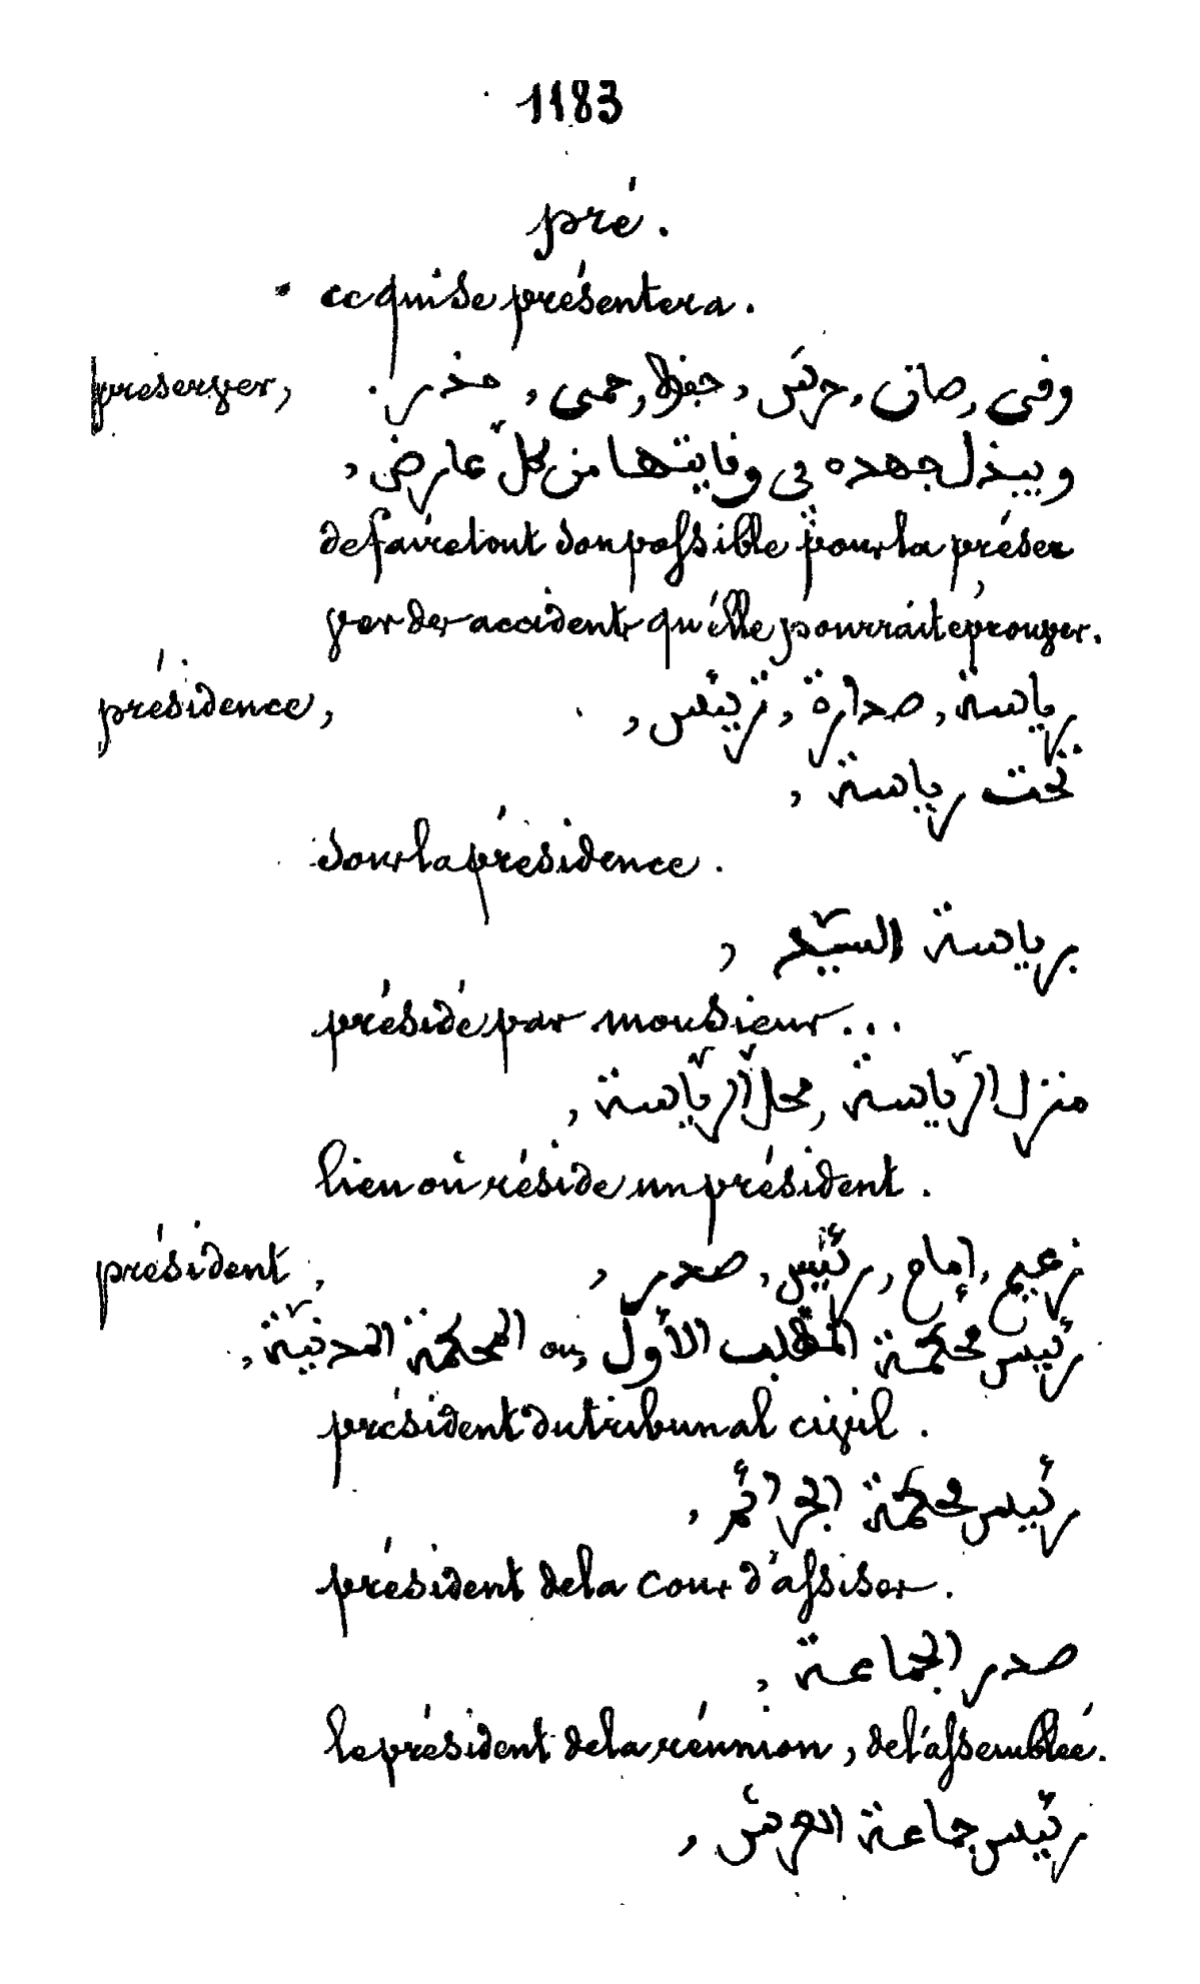 1183
pré.
ce qui se présentera.
préserver, وفى, صان, حرس, حفظ, حمى, حذر.
ويبذل جهده في وقايتها من كلّ عارض,
de faire tout son possible pour la préser
ver des accidents qu'elle pourrait éprouver.
présidence, رياسة, صدارة, تريّس,
تحت رياسة,
sous la présidence.
برياسة السيّد,
présidé par monsieur...
منزل الرّياسة, محلّ الرّياسة,
lieu où réside un président.
président, زعيم, إمام, رئيس, صدر,
رئيس محكمة المطلب الأوّل, ou المحكمة المدنيّة,
président du tribunal civil.
رئيس محكمة الجرائم,
président de la cour d'assises.
صدر الجماعة,
le président de la réunion, de l'assemblée.
رئيس جماعة العرش,